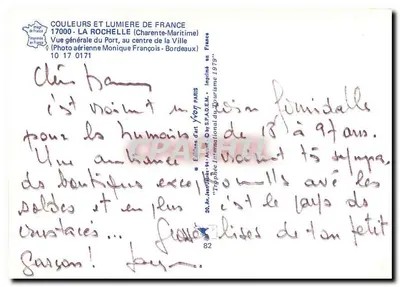 COULEURS ET LUMIERE DE FRANCE
17000 - LA ROCHELLE (Charente-Maritime)
Vue générale du Port, au centre de la Ville
(Photo aérienne Monique François - Bordeaux)
10 17 0171
c'est vraiment un coin formidable
pour les humains de 18 à 97 ans.
Une ambiance vraiment
des boutiques avec les
soldes et en plus c'est le pays de
crustacés... Grosses bises de ton petit
garçon!
Editions d'art YVON PARIS
"Trophée International du Tourisme 1979"
82